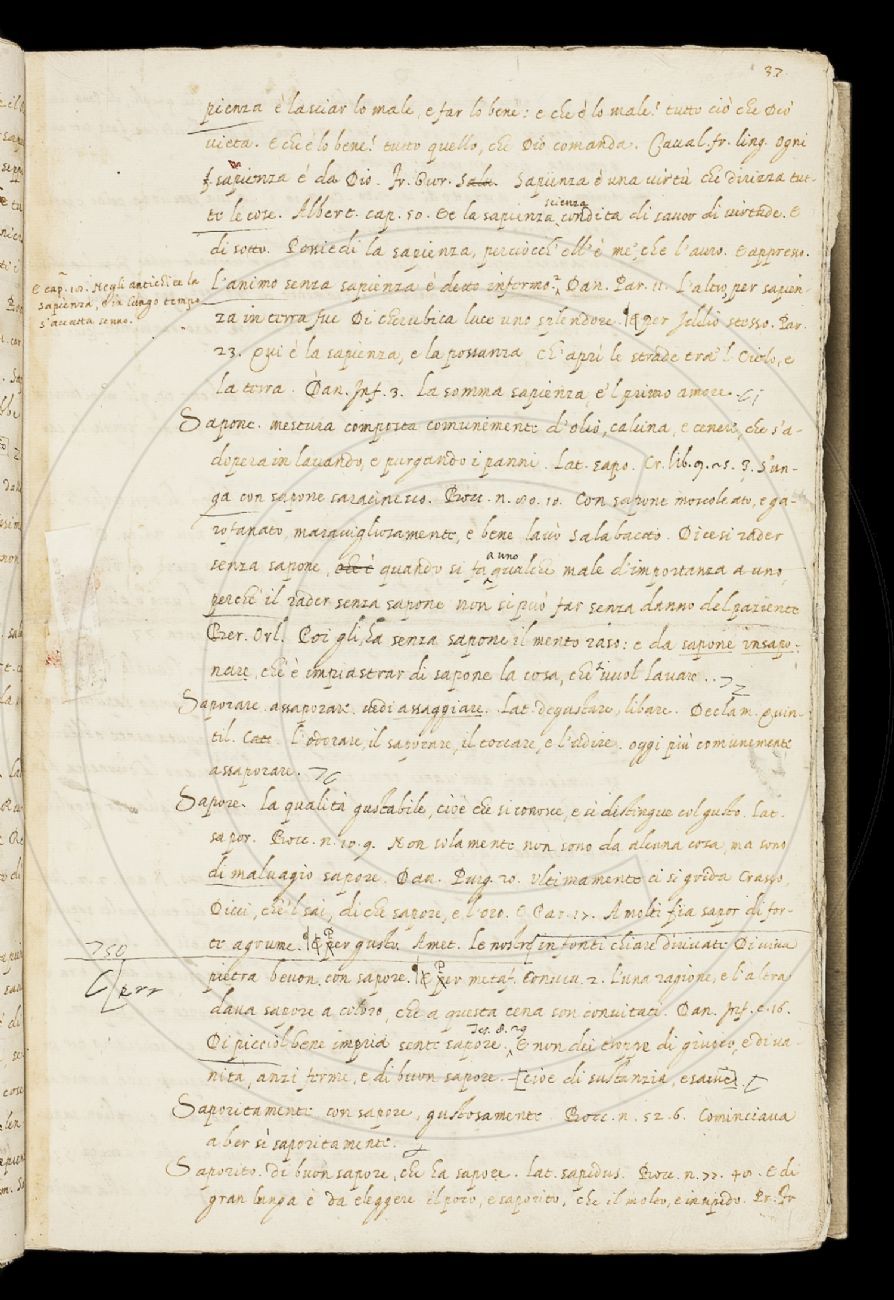 37.
pienza è lasciar lo male, e far lo bene: e che è lo male? tutto ciò che Dio
vieta. E che è lo bene? tutto quello, che Dio comanda. Caual. fr. ling. Ogni
sapienza è da Dio. Fr. Sapienza è una virtù che dirizza tut-
te le cose. Albert. cap. 50. Et la sapienza, scienza condita di savor di virtude. E
di sotto. Possiedi la sapienza, perciocch' ell' è me', che l'auro. E appresso.
E cap. Negli antichi è la
sapienza, e in lungo tempo
s'acasta senno.
L'animo senza sapienza è detto informo. Dan. Par. 11. L'altro, per sapien-
za in terra fue Di cherubica luce uno splendore. E per Iddio stesso. Par.
23. Qui è la sapienza, e la possanza Ch' aprì le strade tra 'l Cielo, e
la terra. Dan. Inf. 3. La somma sapienza e 'l primo amore
Sapone. mestura composta comunemente d'olio, calcina, e cenere, che s'a-
dopera in lavando, e purgando i panni. Lat. sapo. Cr. lib. 9. S'un-
ga con sapone saracinesco. Bocc. n. 80. 10. Con sapone moscoleato, e ga-
rofanato, maravigliosamente, e bene lavò Salabaeto. Dicesi rader
senza sapone, quando si fa a uno qualche male d'importanza a uno,
perchè il rader senza sapone non si può far senza danno del paziente
Ber. Orl. Poi gli ha senza sapone il mento raso: e da sapone insapo-
nare, che è impiastrar di sapone la cosa, che si vuol lavare.
Saporare. assaporare. vedi assaggiare. Lat. degustare, libare. Declam. Quin-
til. L'odorare, il saporare, il toccare, e l'udire. oggi più comunemente
assaporare.
Sapore. la qualità gustabile, cioè che si conosce, e si distingue col gusto. Lat.
sapor. Bocc. n. 10. 9. Non solamente non sono da alcuna cosa, ma sono
di malvagio sapore. Dan. Purg. 20. Ultimamente ci si grida Crasso,
Dicci, che 'l sai, di che sapore, è l'oro. E Par. 17. A molti fia sapor di for-
te agrume. E per gusto. Amet. Le nostre in fonti chiare dirivati Di viva
750
err
pietra bevon, con sapore. E per metaf. Conviv. 2. L'una ragione, e l'altra
dava sapore a coloro, che a questa cena son convitati. Dan. Inf. c. 16.
Di picciol bene in pria sente sapore. E non dei esser di giuoco, e di va-
nità, anzi ferme, e di buon sapore. cioè di sustanzia,
Saporitamente con sapore, gustosamente. Bocc. n. 52. 6. Cominciava
a ber sì saporitamente.
Saporito. di buon sapore, che ha sapore. Lat. sapidus. Bocc. n. 77. E di
gran lunga è da eleggere il poco, e saporito, che il molto, e insipido.